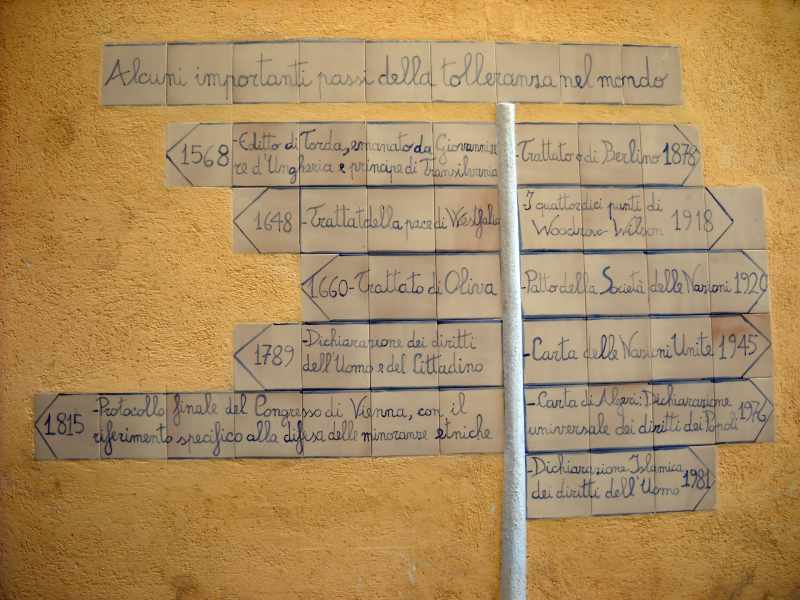 Alcuni importanti passi della tolleranza nel mondo
1568 -Editto di Torda, emanato da Giovanni
re d'Ungheria e principe di Transilvania
1648 -Trattat della pace di Westfalia
1660-Trattato di Oliva
1789 -Dichiarazione dei diritti
dell'Uomo e del Cittadino
1815 -Protocollo finale del Congresso di Vienna, con il
riferimento specifico alla difesa delle minoranze etniche
-Trattato di Berlino 1878
I quattordici punti di
Woodrow Wilson 1918
-Patto della Società delle Nazioni 1920
-Carta delle Nazioni Unite 1945
-Carta di Algeri: Dichiarazione
universale dei diritti dei Popoli 1976
-Dichiarazione Islamica
dei diritti dell'Uomo 1981